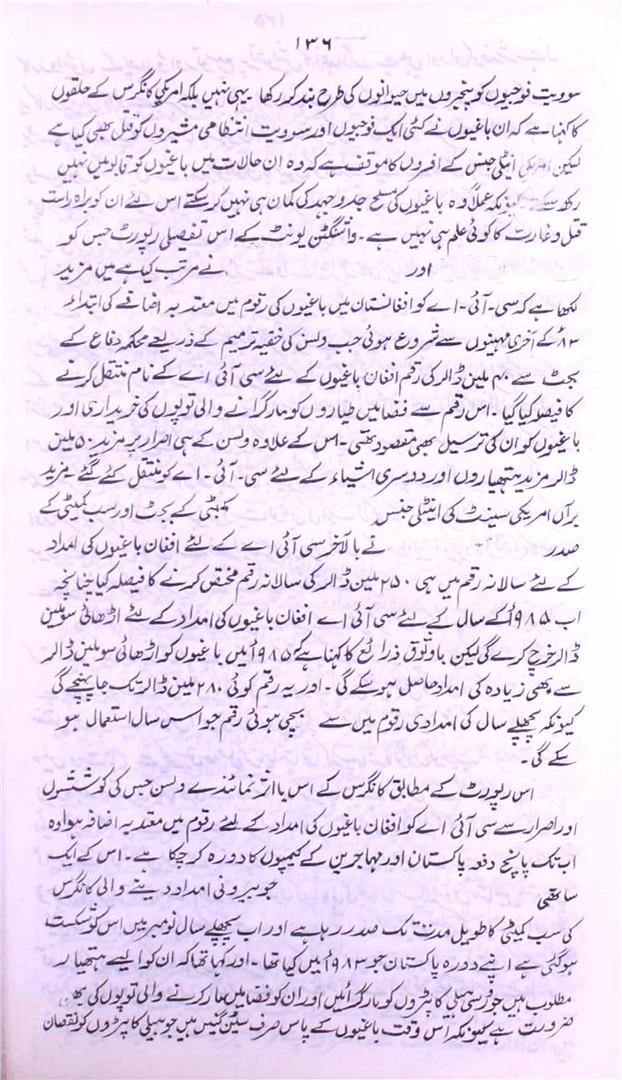 ۱۳۶
سوویت فوجیوں کو پنجیروں میں حیوانوں کی طرح بند کر رکھا یہی نہیں بلکہ امریکی کانگرس کے حلقوں
کا کہنا ہے کہ ان باغیوں نے کئی ایک فوجیوں اور سوویت انتظامی مشیروں کو قتل بھی کیا ہے
لیکن امریکی انٹیلی جنس کے افسروں کا موقف ہے کہ وہ ان حالات میں باغیوں کو قابو میں نہیں
رکھ سکتے کیونکہ عملاً وہ باغیوں کی مسلح جدوجہد کی کمان ہی نہیں کر سکتے اس لئے ان کو براہ راست
قتل و غارت کا کوئی علم ہی نہیں ہے۔ واشنگٹن پوسٹ کے اس تفصیلی رپورٹ جس کو
اور نے مرتب کیا ہے میں مزید
لکھا ہے کہ سی۔آئی۔اے کو افغانستان میں باغیوں کی رقوم میں معتدبہ اضافے کی ابتداء
۸۳ کے آخری مہینوں سے شروع ہوئی جب ولسن کی خفیہ ترمیم کے ذریعے محکمہ دفاع کے
بجٹ سے ۴۰ ملین ڈالر کی رقم افغان باغیوں کے لئے سی آئی اے کے نام منتقل کرنے
کا فیصلہ کیا گیا۔ اس رقم سے فضا میں طیاروں کو مار گرانے والی توپوں کی خریداری اور
باغیوں کو ان کی ترسیل بھی مقصود تھی۔ اس کے علاوہ ولسن کے ہی اصرار پر مزید ۵۰ ملین
ڈالر مزید ہتھیاروں اور دوسری اشیاء کے لئے سی۔آئی۔اے کو منتقل کئے گئے۔ مزید
برآں امریکی سینٹ کی انٹیلی جنس کمیٹی کے بجٹ اور سب کمیٹی کے
صدر نے بالآخر سی آئی اے کے لئے افغان باغیوں کی امداد
کے لئے سالانہ رقم میں ہی ۲۵۰ ملین ڈالر کی سالانہ رقم مختص کرنے کا فیصلہ کیا چنانچہ
اب ۱۹۸۵ء کے سال کے لئے سی آئی اے افغان باغیوں کی امداد کے لئے اڑھائی سو ملین
ڈالر خرچ کرے گی لیکن باوثوق ذرائع کا کہنا ہے کہ ۱۹۸۵ء میں باغیوں کو اڑھائی سو ملین ڈالر
سے بھی زیادہ کی امداد حاصل ہو سکے گی۔ اور یہ رقم کوئی ۲۸۰ ملین ڈالر تک جا پہنچے گی
کیونکہ پچھلے سال کی امدادی رقوم میں سے بچی ہوئی رقم جو اس سال استعمال ہو
سکے گی۔
اس رپورٹ کے مطابق کانگرس کے اس بااثر نمائندے ولسن جس کی کوششوں
اور اصرار سے سی آئی اے کو افغان باغیوں کی امداد کے لئے رقوم میں معتدبہ اضافہ ہوا وہ
اب تک پانچ دفعہ پاکستان اور مہاجرین کے کیمپوں کا دورہ کر چکا ہے۔ اس کے ایک
ساتھی جو بیرونی امداد دینے والی کانگرس
کی سب کمیٹی کا طویل مدت تک صدر رہا ہے اور اب پچھلے سال نومبر میں اس کو شکست
ہو گئی ہے اپنے دورہ پاکستان جو ۱۹۸۳ء میں کیا تھا۔ اور کہا تھا کہ ان کو ایسے ہتھیار
مطلوب ہیں جو روسی ہیلی کاپٹروں کو مار گرائیں اور ان کو فضا میں مار کرنے والی توپوں کی بھی
ضرورت ہے کیونکہ اس وقت باغیوں کے پاس صرف سٹین گنیں ہیں جو ہیلی کاپٹروں کو نقصان